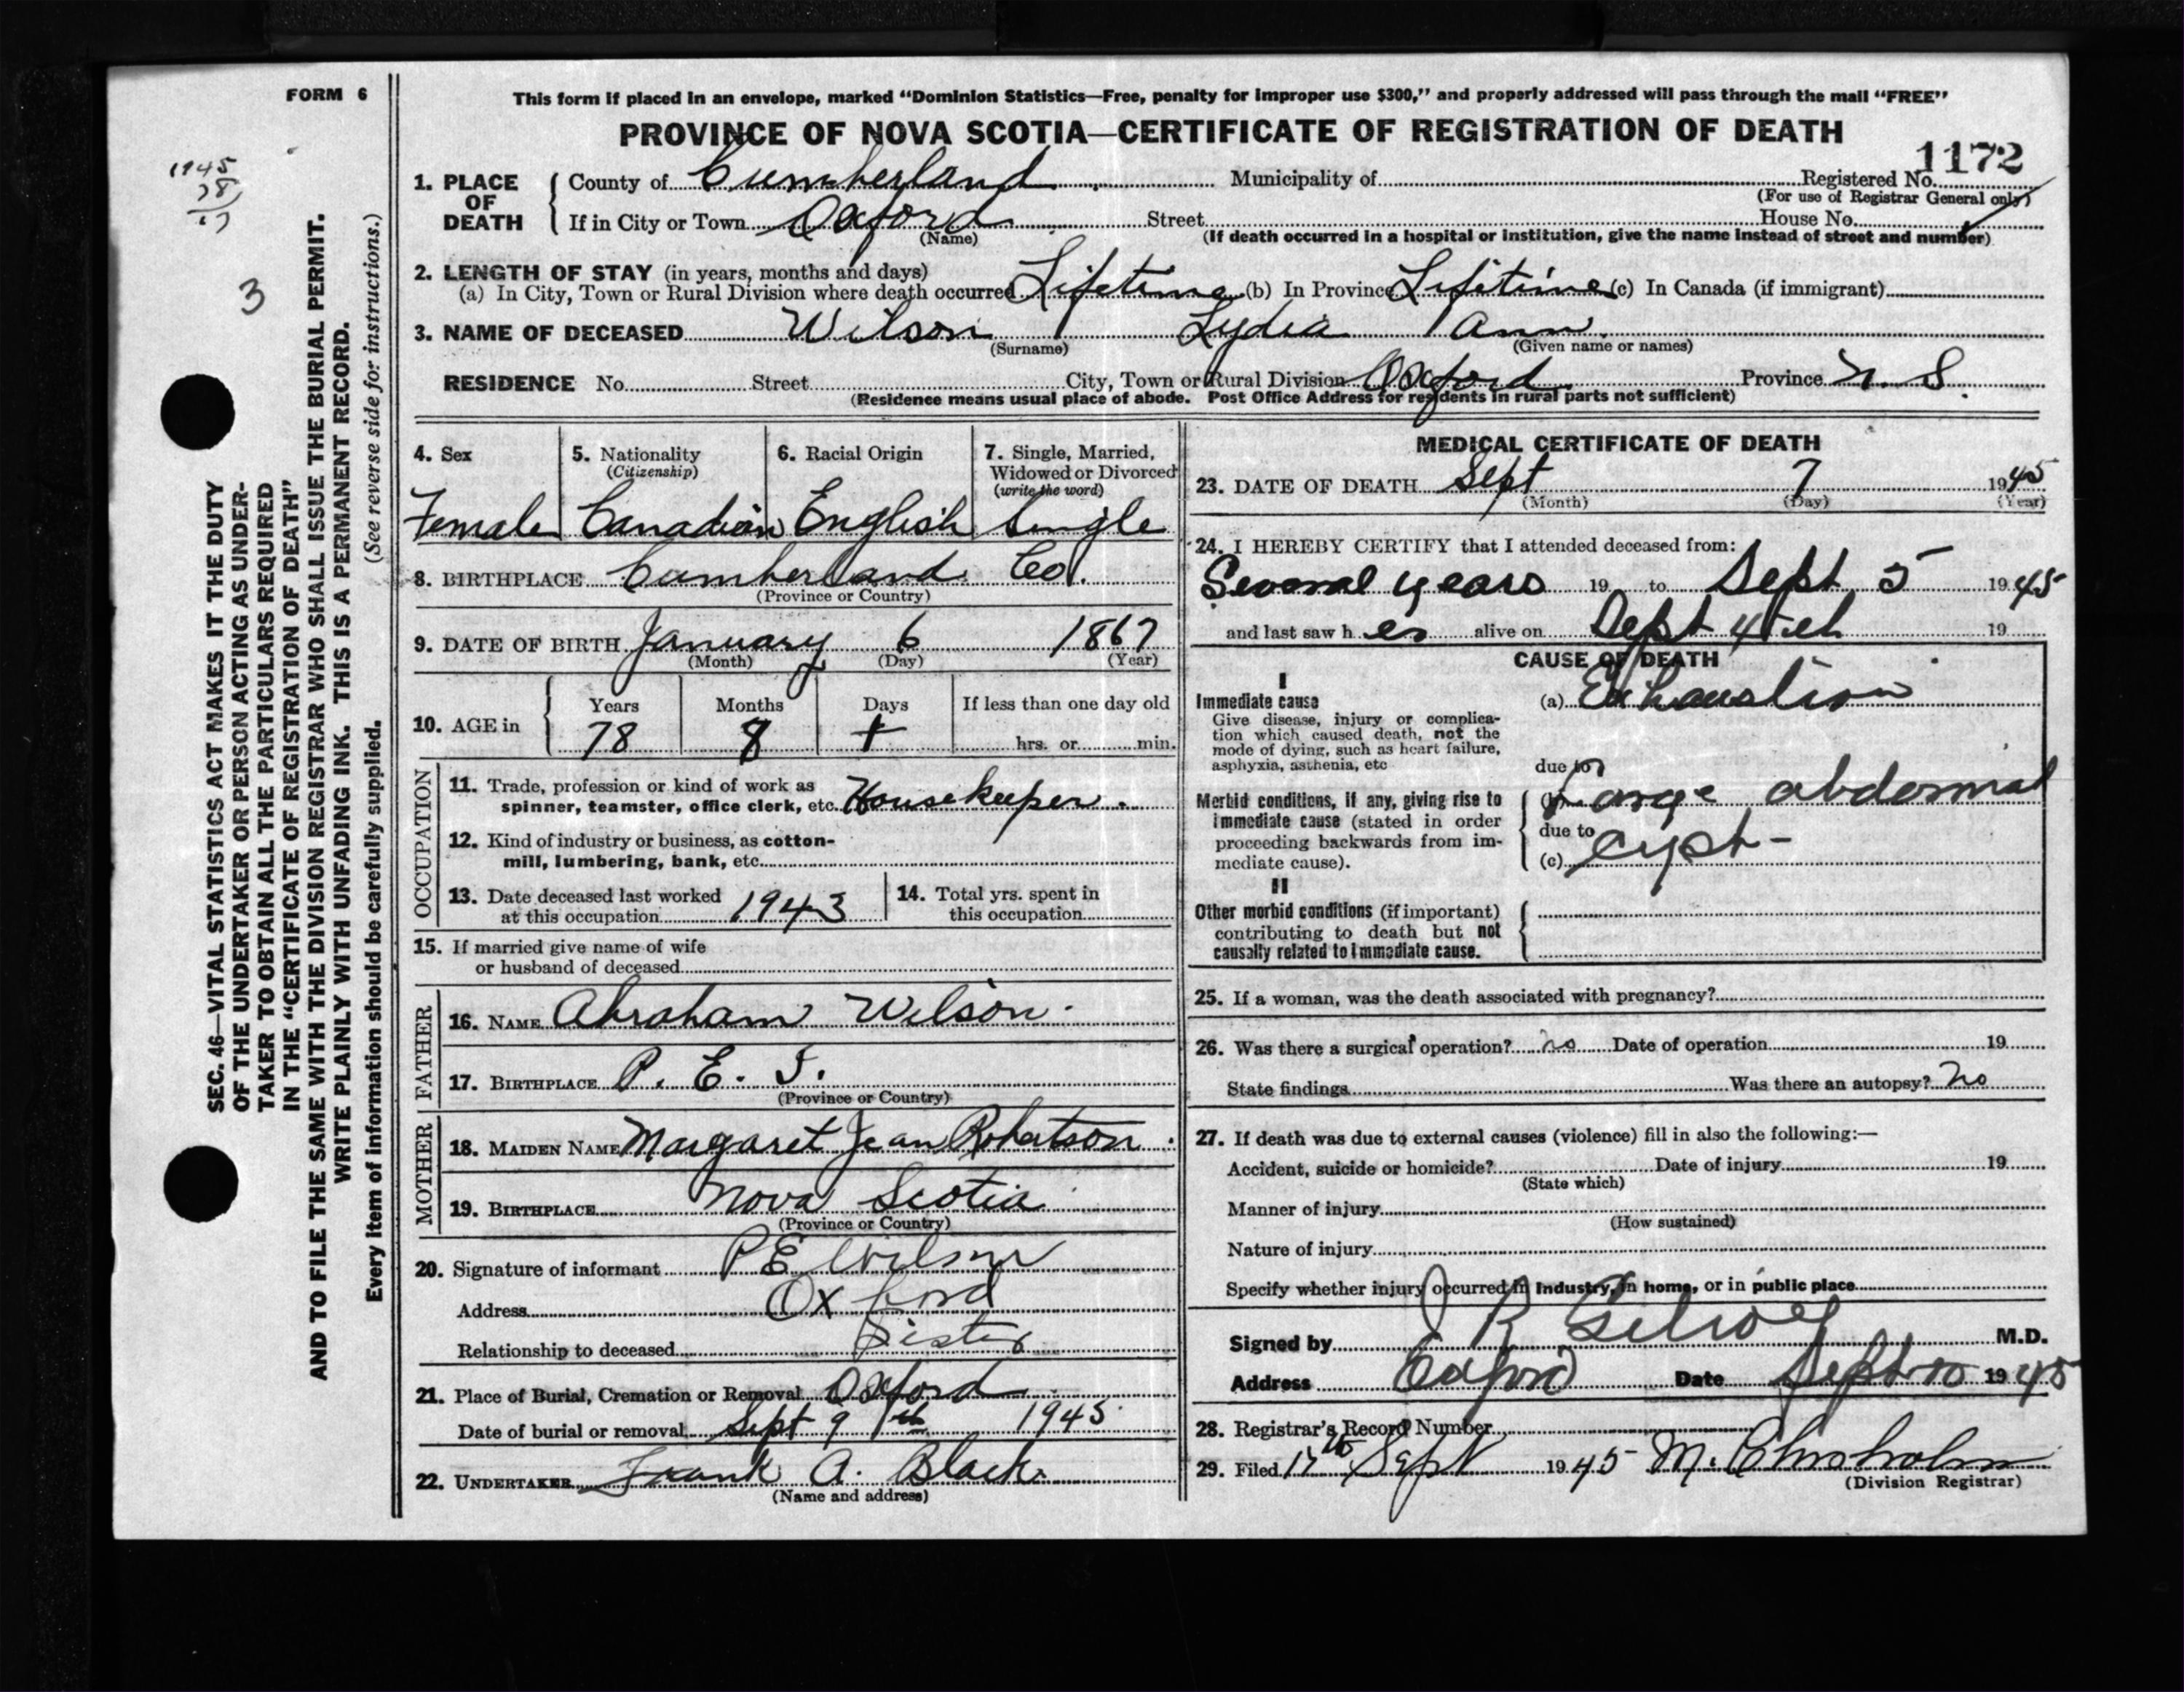 FORM 6
This form if placed in an envelope, marked “Dominion Statistics—Free, penalty for improper use $300,” and properly addressed will pass through the mail “FREE”
PROVINCE OF NOVA SCOTIA—CERTIFICATE OF REGISTRATION OF DEATH
1172
1945
78
3
SEC. 46—VITAL STATISTICS ACT MAKES IT THE DUTY
OF THE UNDERTAKER OR PERSON ACTING AS UNDER-
TAKER TO OBTAIN ALL THE PARTICULARS REQUIRED
IN THE “CERTIFICATE OF REGISTRATION OF DEATH”
AND TO FILE THE SAME WITH THE DIVISION REGISTRAR WHO SHALL ISSUE THE BURIAL PERMIT.
WRITE PLAINLY WITH UNFADING INK. THIS IS A PERMANENT RECORD.
Every item of information should be carefully supplied. (See reverse side for instructions.)
1. PLACE OF DEATH
County of Cumberland Municipality of Registered No.
(For use of Registrar General only)
If in City or Town Oxford Street House No.
(Name) (If death occurred in a hospital or institution, give the name instead of street and number)
2. LENGTH OF STAY (in years, months and days)
(a) In City, Town or Rural Division where death occurred Lifetime (b) In Province Lifetime (c) In Canada (if immigrant)
3. NAME OF DECEASED Wilson Lydia Ann
(Surname) (Given name or names)
RESIDENCE No. Street City, Town or Rural Division Oxford Province N. S.
(Residence means usual place of abode. Post Office Address for residents in rural parts not sufficient)
4. Sex 5. Nationality 6. Racial Origin 7. Single, Married,
(Citizenship) Widowed or Divorced
(write the word)
Female Canadian English Single
8. BIRTHPLACE Cumberland Co.
(Province or Country)
9. DATE OF BIRTH January 6 1867
(Month) (Day) (Year)
10. AGE in Years Months Days If less than one day old
78 8 hrs. or min.
OCCUPATION
11. Trade, profession or kind of work as
spinner, teamster, office clerk, etc. Housekeeper.
12. Kind of industry or business, as cotton-
mill, lumbering, bank, etc.
13. Date deceased last worked
at this occupation 1943
14. Total yrs. spent in
this occupation
15. If married give name of wife
or husband of deceased
FATHER
16. NAME Abraham Wilson
17. BIRTHPLACE P. E. I.
(Province or Country)
MOTHER
18. MAIDEN NAME Margaret Jean Robertson
19. BIRTHPLACE Nova Scotia
(Province or Country)
20. Signature of informant P E Wilson
Address Oxford
Relationship to deceased Sister
21. Place of Burial, Cremation or Removal Oxford
Date of burial or removal Sept 9 th 1945
22. UNDERTAKER Frank A. Black
(Name and address)
MEDICAL CERTIFICATE OF DEATH
23. DATE OF DEATH Sept 7 1945
(Month) (Day) (Year)
24. I HEREBY CERTIFY that I attended deceased from:
Several years 19 to Sept 5 1945
and last saw h er alive on Sept 19
CAUSE OF DEATH
I
Immediate cause
Give disease, injury or complica-
tion which caused death, not the
mode of dying, such as heart failure,
asphyxia, asthenia, etc
(a) Exhaustion
due to
Morbid conditions, if any, giving rise to
immediate cause (stated in order
proceeding backwards from im-
mediate cause).
(b) Large abdominal
due to
(c) cyst -
II
Other morbid conditions (if important)
contributing to death but not
causally related to immediate cause.
25. If a woman, was the death associated with pregnancy?
26. Was there a surgical operation? no Date of operation 19
State findings Was there an autopsy? No
27. If death was due to external causes (violence) fill in also the following:—
Accident, suicide or homicide? Date of injury 19
(State which)
Manner of injury
(How sustained)
Nature of injury
Specify whether injury occurred in industry, in home, or in public place
Signed by J R M.D.
Address Oxford Date Sept 10 1945
28. Registrar's Record Number
29. Filed 17th Sept 1945 M. Chisholm
(Division Registrar)